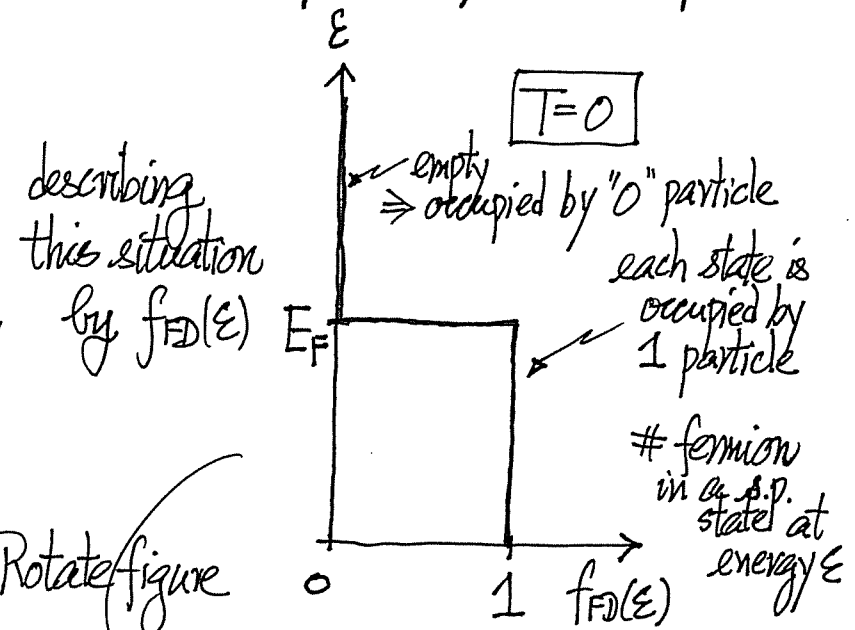 ε
T=0
describing
this situation
by fFD(ε)
empty
⇒ occupied by "0" particle
each state is
occupied by
1 particle
EF
# fermion
in a s.p.
state at
energy ε
Rotate figure
0
1
fFD(ε)